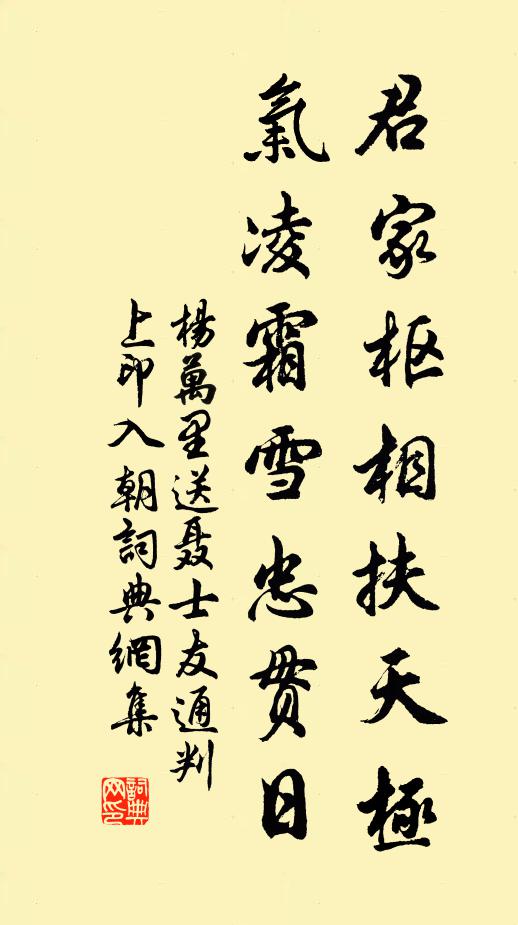 君家枢相扶天極
氣凌霜雪忠贯日
楊萬里送聂士友通判
上印入朝詞典網集
詞典网印